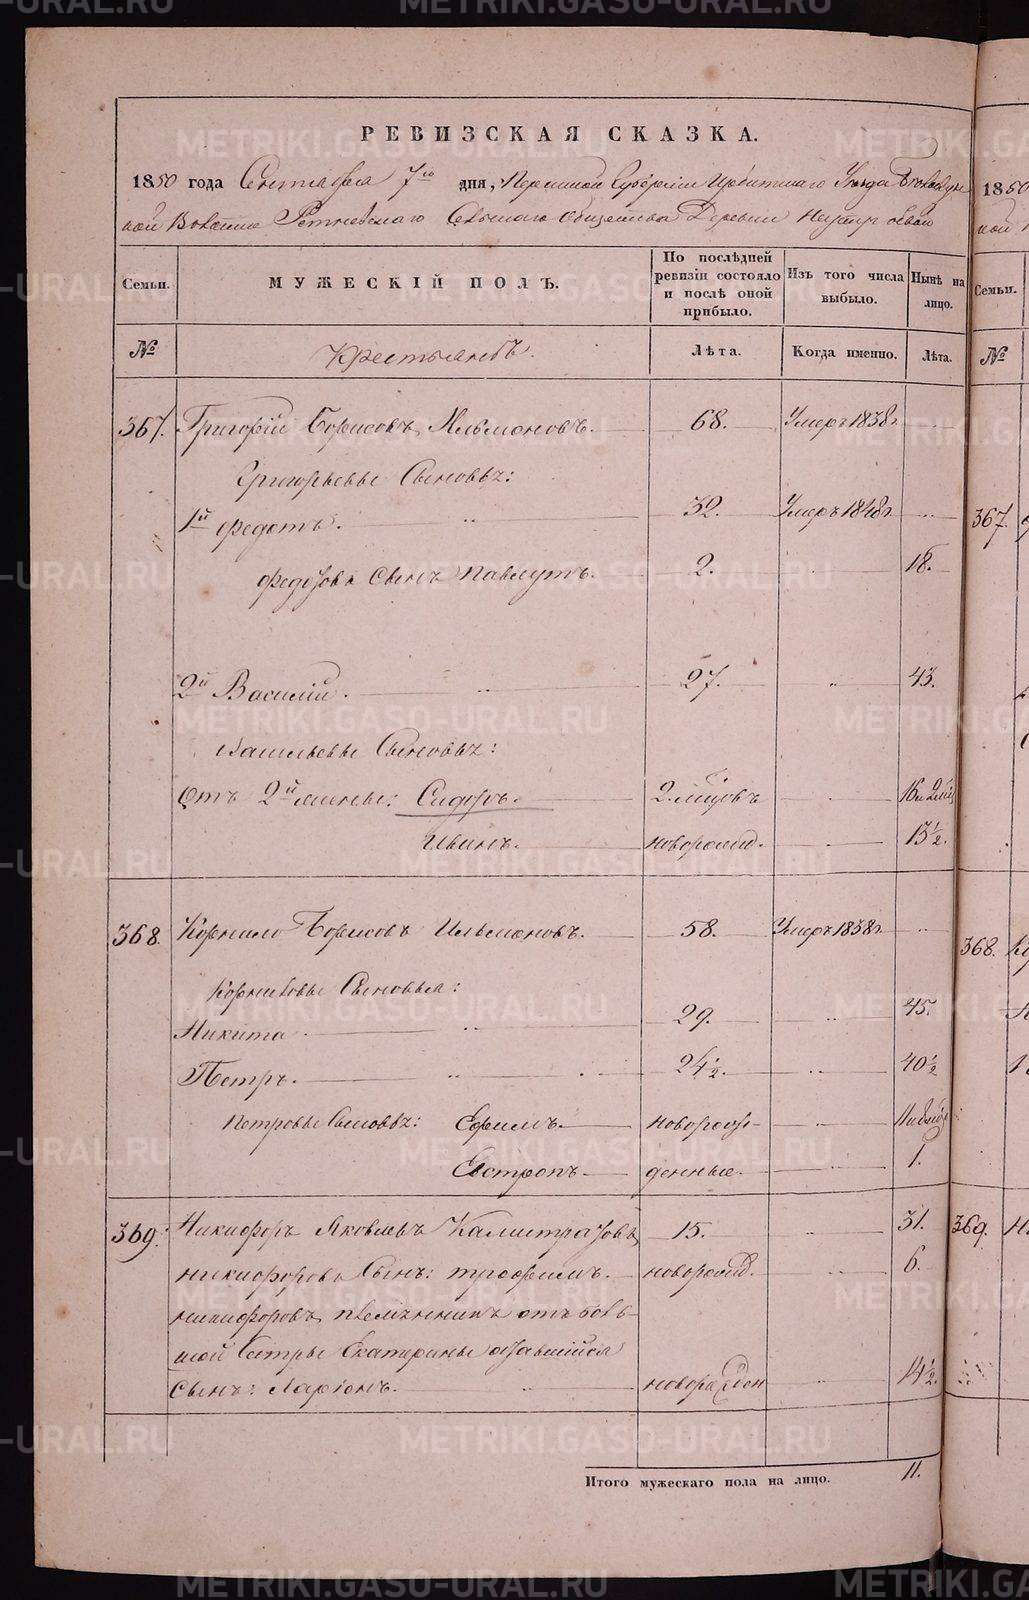 РЕВИЗСКАЯ СКАЗКА.
1850 года Сентября 7го дня, Пермской Губернии Ирбитскаго Уезда Белослуд
ской Волости Ретневскаго Сельскаго Общества Деревни
Семьи. МУЖЕСКІЙ ПОЛЪ. По послѣдней ревизіи состояло и послѣ оной прибыло. Изъ того числа выбыло. Нынѣ на лицо.
№ Крестьянъ. Лѣта. Когда именно. Лѣта.
367. Григорій Борисовъ Ильмоновъ. 68. Умеръ 1838г. ..
Григорьевы Сыновья:
1й Федотъ. 32. Умеръ 1848г. ..
Федотовъ Сынъ Павлутъ. 2. 18.
2й Василій. 27. 43.
Васильевы Сыновья:
Отъ 2й жены: Сидоръ. 2. мѣсцовъ 16 и 2 мѣс
Иванъ. новорожд. 13½.
368. Корнило Борисовъ Ильмоновъ. 58. Умеръ 1838г. ..
Корниловы Сыновья:
Никита 29. 45.
Петръ. 24½. 40½
Петровы Сыновья: Ефимъ. новорож-
Евстропъ. денные. 1.
369. Никифоръ Яковлевъ Калистратовъ, 15. 31.
Никифоровъ Сынъ: Трофимъ. новорожд. 6.
Никифоровъ племянникъ отъ боль-
шой Сестры Екатерины оставшійся
Сынъ: Ларіонъ. новорожден 14½.
Итого мужескаго пола на лицо. 11.
1850
ной
Семьи.
№
367.
368.
369.
METRIKI.GASO-URAL.RU